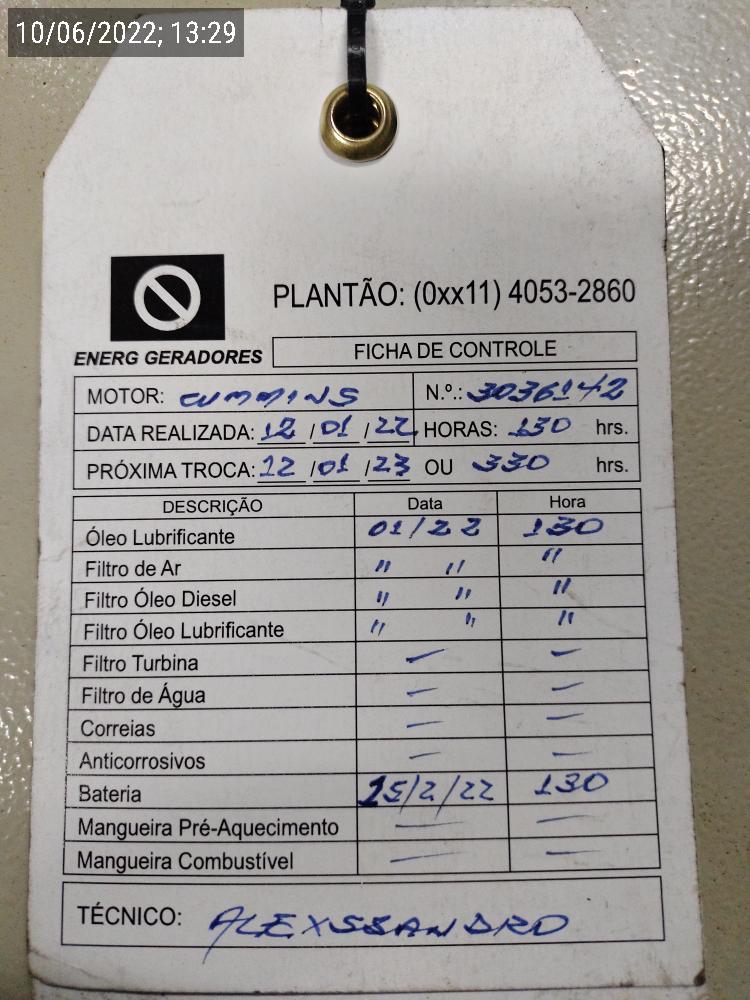 10/06/2022; 13:29
PLANTÃO: (0xx11) 4053-2860
ENERG GERADORES
FICHA DE CONTROLE
MOTOR: CUMMINS N.º.: 3036142
DATA REALIZADA: 12 / 01 / 22 HORAS: 130 hrs.
PRÓXIMA TROCA: 12 / 01 / 23 OU 330 hrs.
DESCRIÇÃO Data Hora
Óleo Lubrificante 01/22 130
Filtro de Ar " " "
Filtro Óleo Diesel " " "
Filtro Óleo Lubrificante " " "
Filtro Turbina — —
Filtro de Água — —
Correias — —
Anticorrosivos — —
Bateria 15/2/22 130
Mangueira Pré-Aquecimento — —
Mangueira Combustível — —
TÉCNICO: ALEXSSANDRO